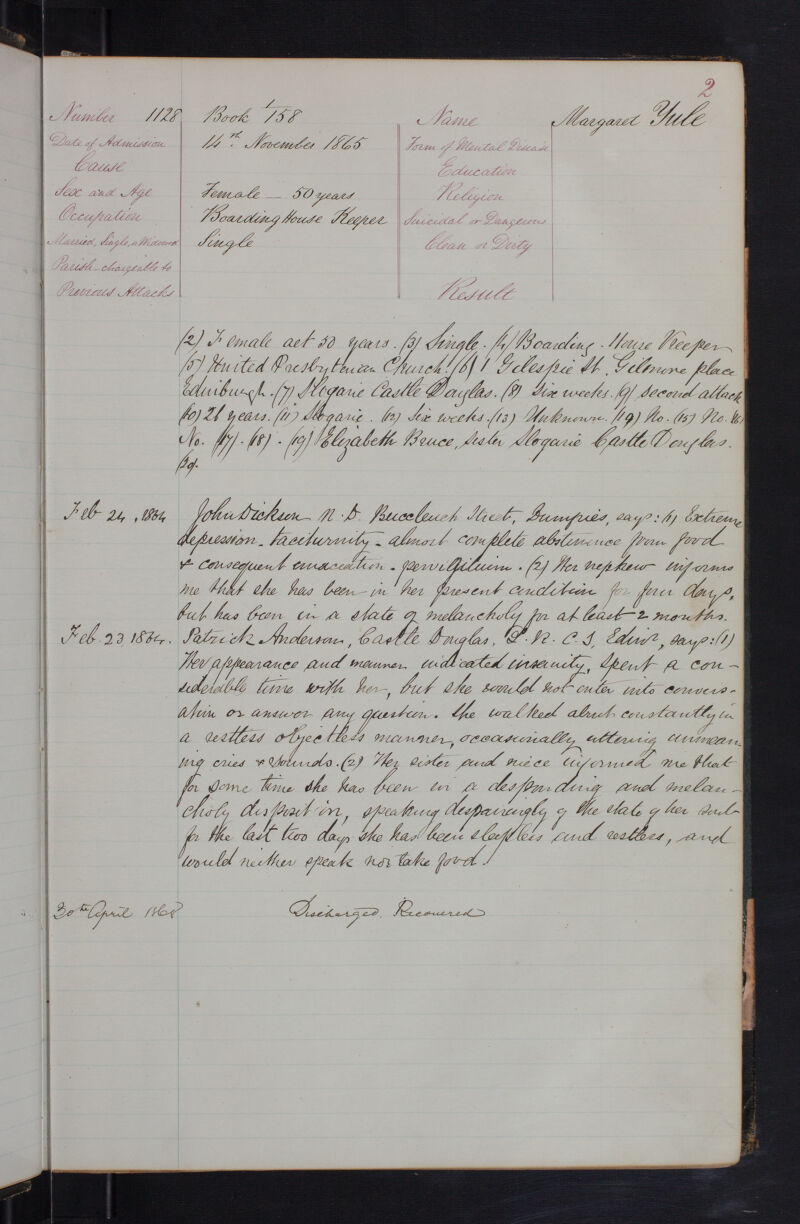 2
Number 1128 Book 1/158 Name Margaret Yule
Date of Admission 14th. November 1865 Form of Mental Disease
Cause Education
Sex and Age Female — 50 years Religion
Occupation Boarding House Keeper Suicidal or Dangerous
Married, Single, or Widowed Single Clean or Dirty
Parish chargeable to
Previous Attacks Result
(2) Female aet 50 years. (3) Single. (4) Boarding-House Keeper
(5) United Presbyterian Church. (6) 1 Gilespie St, Gilmore place
Edinburgh. (7) Slogarie Castle Douglas. (8) Six weeks. (9) Second attack
(10) 26 years. (11) Slogarie. (12) Six weeks. (13) Unknown. (14) No. (15) No. (16)
No. (17). (18). (19) Elizabeth Bruce, Sister Slogarie Castle Douglas.
(20).
Feb 24, 1864 John Dickson M.D. Buccleuch Street, Dumfries, says: (1) Extreme
depression - taciturnity - almost complete abstinence from food
& consequent emaciation. pervigilium. (2) Her nephew informs
me that she has been in her present condition for four days,
but has been in a state of melancholy for at least 2 months.
Feb. 23 1864. Patrick Anderson, Castle Douglas, L.R.C.S, Edinr, says: (1)
Her appearance and manner indicated insanity, Spent a con-
siderable time with her, but she would not enter into convers-
ation or answer any question. She walked about constantly in
a restless objectless manner, occasionally uttering unmean-
ing cries & sounds. (2) Her sister and niece informed me that
for some time she has been in a desponding and melan-
choly disposition, speaking despairingly of the state of her soul
for the last two days she has been sleepless and restless, and
would neither speak nor take food.
30th April 1868 Discharged. Recovered